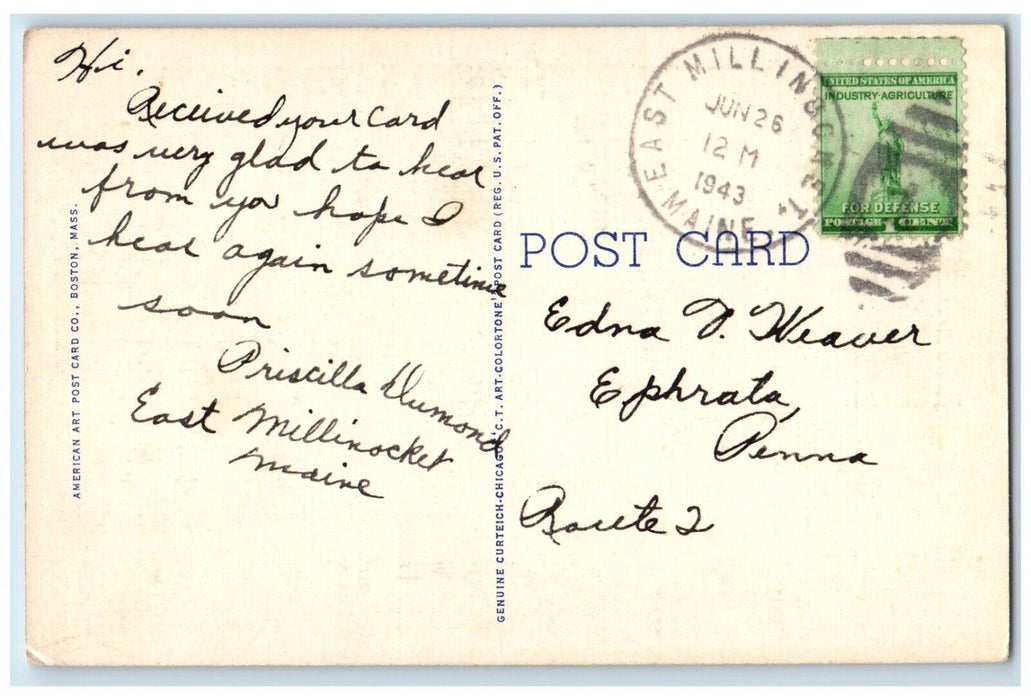 Hi.
Received your card
was very glad to hear
from yor hope I
hear again sometime
soon
Priscilla Dumond
East Millinocket
Maine
AMERICAN ART POST CARD CO., BOSTON, MASS.
GENUINE CURTEICH-CHICAGO "C.T. ART-COLORTONE" POST CARD (REG. U.S. PAT. OFF.)
EAST MILLINOCKET
JUN 26
12 M
1943
MAINE
UNITED STATES OF AMERICA
INDUSTRY · AGRICULTURE
FOR DEFENSE
POSTAGE 1 CENT
POST CARD
Edna D. Weaver
Ephrata,
Penna
Route 2